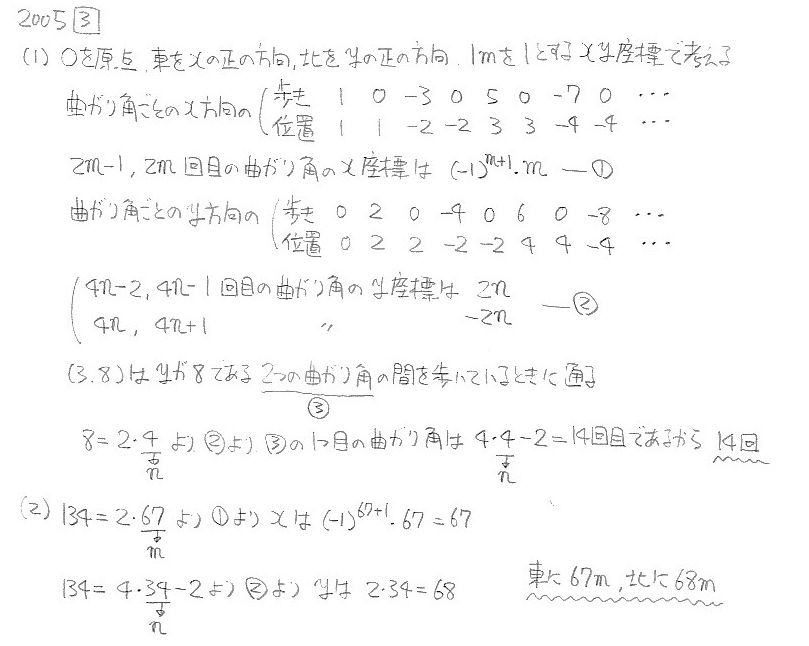 2005 3
(1) Oを原点、東をxの正の方向,北をyの正の方向、1mを1とするxy座標で考える
曲がり角ごとのx方向の 歩き 1 0 -3 0 5 0 -7 0 …
位置 1 1 -2 -2 3 3 -4 -4 …
2m-1, 2m回目の曲がり角のx座標は (-1)^{m+1}・m ―①
曲がり角ごとのy方向の 歩き 0 2 0 -4 0 6 0 -8 …
位置 0 2 2 -2 -2 4 4 -4 …
4n-2, 4n-1回目の曲がり角のy座標は 2n
4n, 4n+1 〃 -2n ―②
(3.8)はyが8である2つの曲がり角の間を歩いているときに通る
③
8=2・4より②より③の1つ目の曲がり角は4・4-2=14回目であるから 14回
↓ ↓
n n
(2) 134=2・67より①よりxは(-1)^{67+1}・67=67
↓
m
134=4・34-2より②よりyは 2・34=68 東に67m,北に68m
↓
n